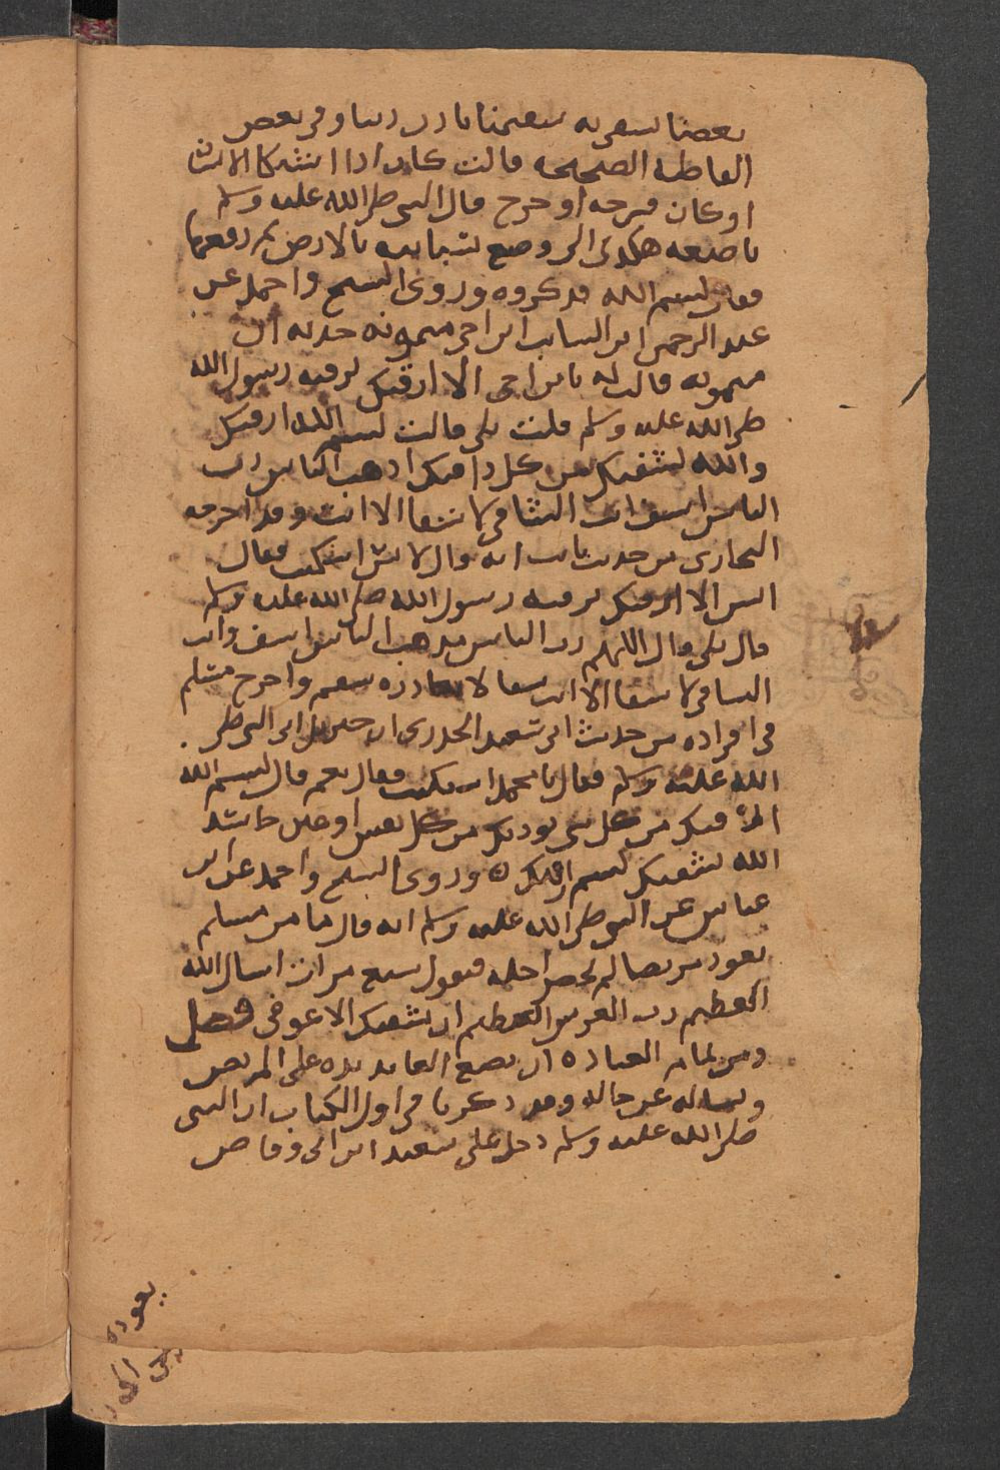 بعضنا يشفى به سقيمنا باذن ربنا وفي بعض
الفاظه الصحيحه قالت كان اذا اشتكا الانسان
او كان قرحه او جرح قال النبي صلى الله عليه وسلم
باصبعه هكذى الى وضع سبابته بالارض ثم رفعها
فقال بسم الله فذكروه وروى النسائي واحمد عن
عبد الرحمن ابن السايب ابن اخي ميمونه حدثه ان
ميمونه قالت له يابن اخي الا ارقيك برقيه رسول الله
صلى الله عليه وسلم قلت بلى قالت بسم الله ارقيك
والله يشفيك من كل دا فيك اذهب الباس رب
الناس اشف انت الشافي لا شفا الا انت وقد اخرجه
البخاري من حديث ثابت انه قال لانس اشتكيت فقال
انس الا ارقيك برقيه رسول الله صلى الله عليه وسلم
قال بلى قال اللهم رب الناس مذهب الباس اشف وانت
الشافي لا شفا الا انت شفا لا يغادره سقم واخرج مسلم
في افراده من حديث ابي سعيد الخدري ان جبريل اتى النبي صلى
الله عليه وسلم فقال يا محمد اشتكيت فقال نعم قال بسم الله
ارقيك من كل شي يوذيك من كل نفس او عين حاسد
الله يشفيك بسم الله ارقيك ٥ وروى النسائي واحمد عن ابن
عباس عن النبي صلى الله عليه وسلم انه قال ما من مسلم
يعود مريضا لم يحضر اجله فيقول سبع مرات اسال الله
العظيم رب العرش العظيم ان يشفيك الا عوفي فصل
ومن تمام العياده ان يضع العايد يده على المريض
ويساله عن حاله وقد ذكرنا في اول الكتاب ان النبي
صلى الله عليه وسلم دخل على سعيد ابن ابي وقاص
يعوده